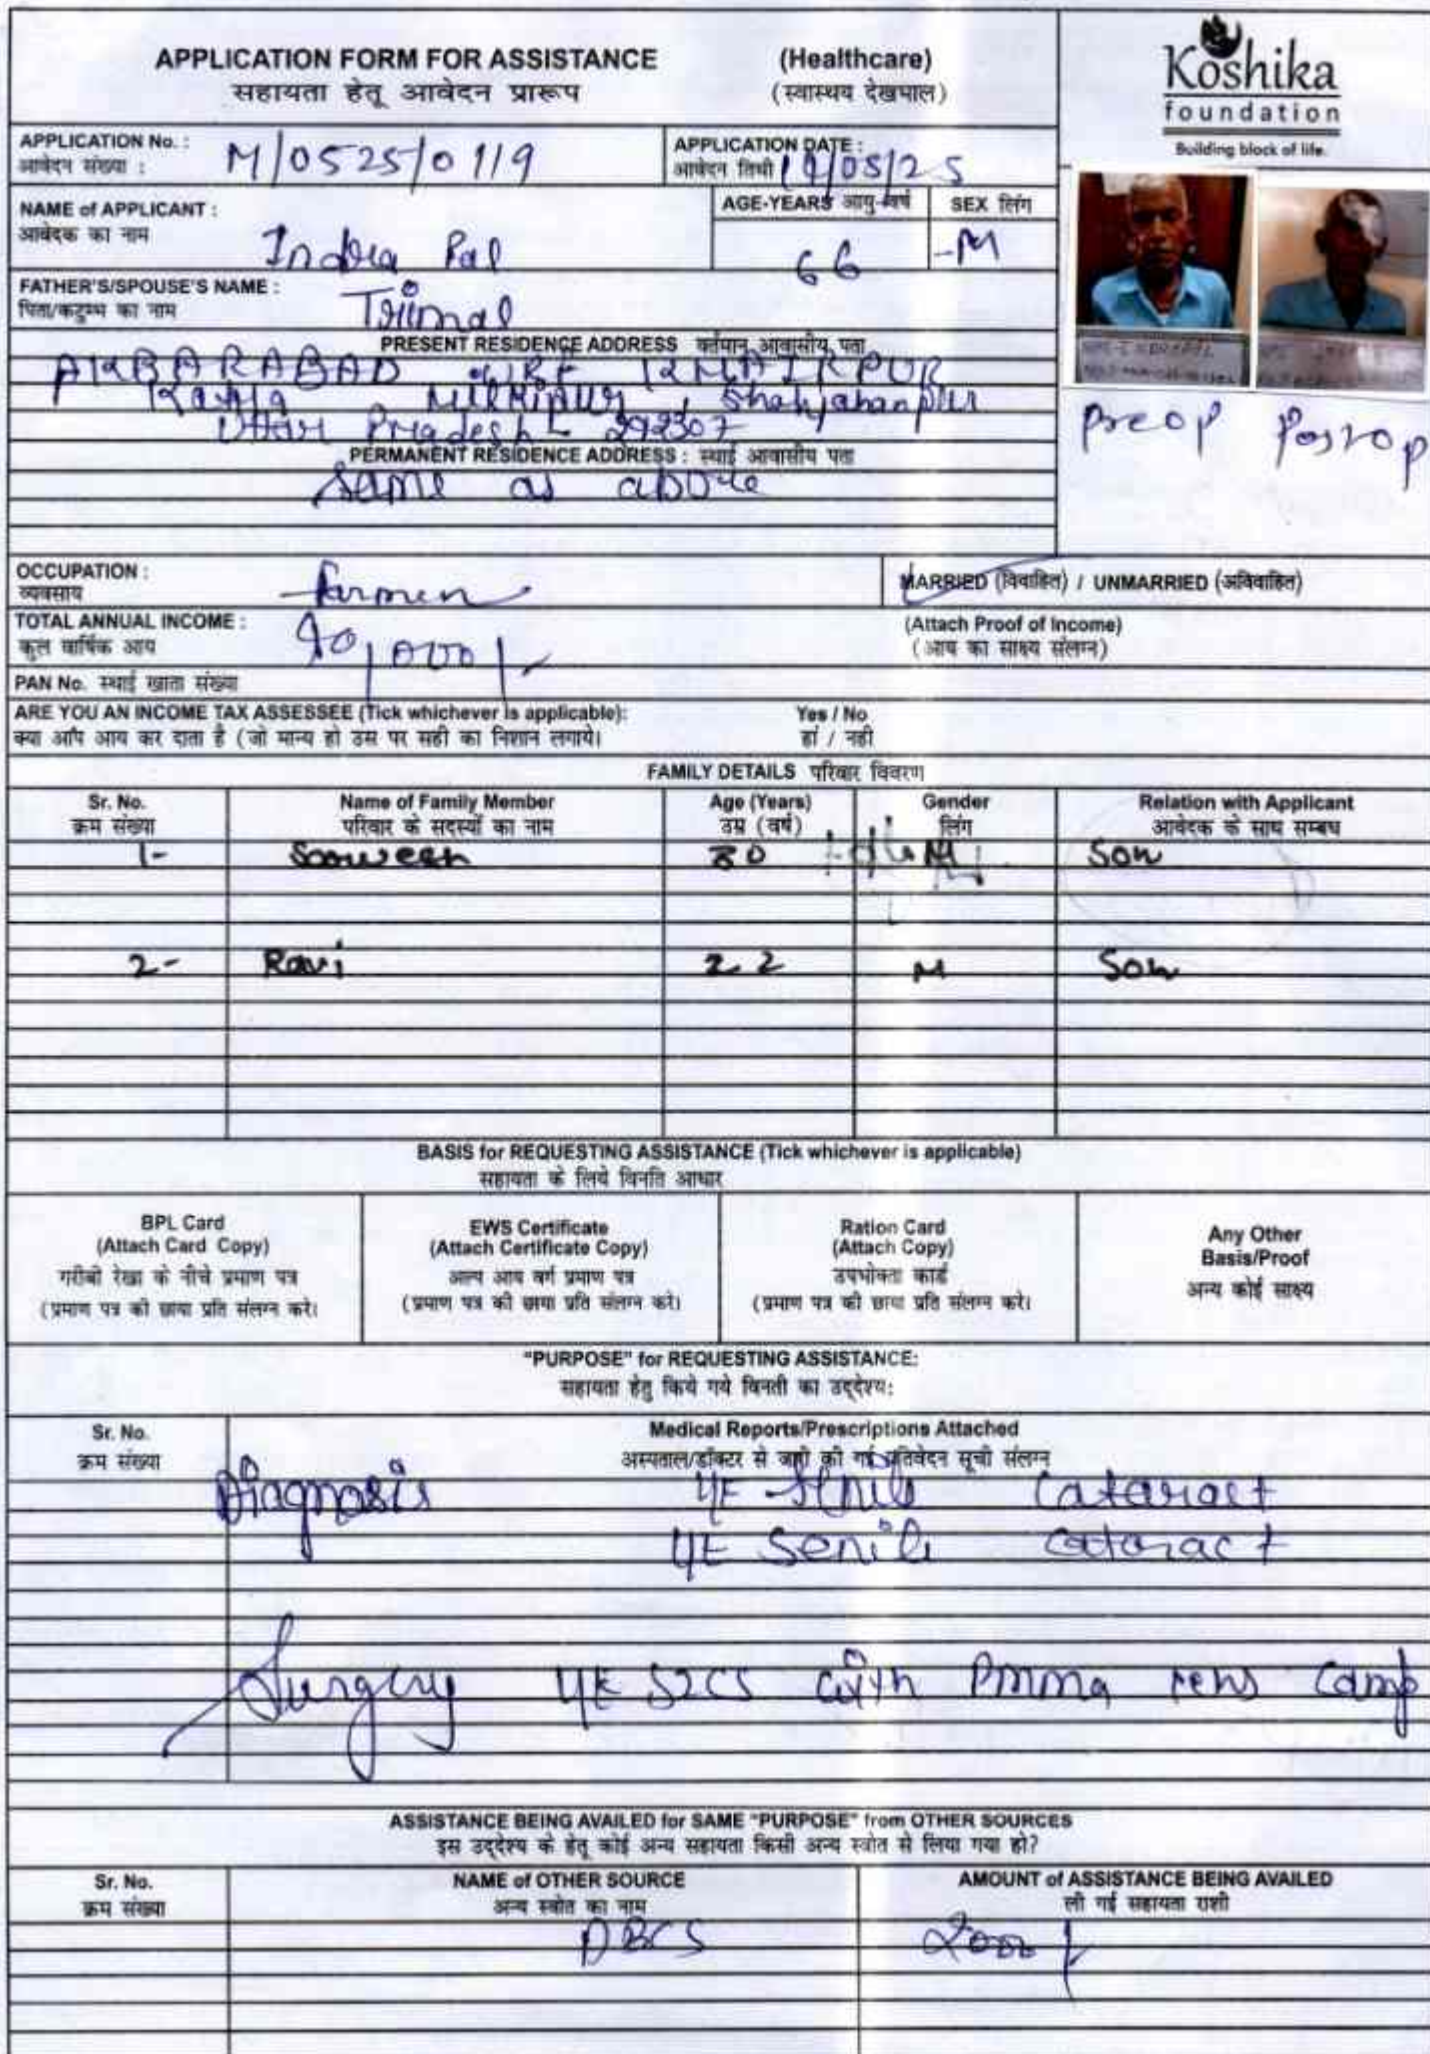 APPLICATION FORM FOR ASSISTANCE (Healthcare)
सहायता हेतू आवेदन प्रारूप (स्वास्थय देखभाल)
Koshika
foundation
Building block of life.
APPLICATION No. : M/0525/0119
आवेदन संख्या :
APPLICATION DATE :
आवेदन तिथी /05/25
NAME of APPLICANT :
आवेदक का नाम
Indra Pal
AGE-YEARS आयु-वर्ष
66
SEX लिंग
-M
FATHER'S/SPOUSE'S NAME :
पिता/कटुम्भ का नाम
PRESENT RESIDENCE ADDRESS वर्तमान आवासीय पता
AKBARABAD
Shahjahanpur
Uttar Pradesh
PERMANENT RESIDENCE ADDRESS : स्थाई आवासीय पता
Same as above
Preop Postop
OCCUPATION :
व्यवसाय
farmer
MARRIED (विवाहित) / UNMARRIED (अविवाहित)
TOTAL ANNUAL INCOME :
कुल वार्षिक आय
(Attach Proof of Income)
(आय का साक्ष्य संलग्न)
PAN No. स्थाई खाता संख्या
ARE YOU AN INCOME TAX ASSESSEE (Tick whichever is applicable): Yes / No
क्या आप आय कर दाता है (जो मान्य हो उस पर सही का निशान लगाये। हां / नही
FAMILY DETAILS परिवार विवरण
Sr. No. Name of Family Member Age (Years) Gender Relation with Applicant
क्रम संख्या परिवार के सदस्यों का नाम उम्र (वर्ष) लिंग आवेदक के साथ सम्बध
1- M Son
2- Ravi 22 M Son
BASIS for REQUESTING ASSISTANCE (Tick whichever is applicable)
सहायता के लिये विनति आधार
BPL Card
(Attach Card Copy)
गरीबी रेखा के नीचे प्रमाण पत्र
(प्रमाण पत्र की छाया प्रति संलग्न करे।
EWS Certificate
(Attach Certificate Copy)
अल्प आय वर्ग प्रमाण पत्र
(प्रमाण पत्र की छाया प्रति संलग्न करे।
Ration Card
(Attach Copy)
उपभोक्ता कार्ड
(प्रमाण पत्र की छाया प्रति संलग्न करे।
Any Other
Basis/Proof
अन्य कोई साक्ष्य
"PURPOSE" for REQUESTING ASSISTANCE:
सहायता हेतु किये गये विनती का उद्देश्य:
Sr. No. Medical Reports/Prescriptions Attached
क्रम संख्या अस्पताल/डॉक्टर से जारी की गई प्रतिवेदन सूची संलग्न
Diagnosis Cataract
Cataract
Surgery SICS with Pmma lens Camp
ASSISTANCE BEING AVAILED for SAME "PURPOSE" from OTHER SOURCES
इस उद्देश्य के हेतू कोई अन्य सहायता किसी अन्य स्त्रोत से लिया गया हो?
Sr. No. NAME of OTHER SOURCE AMOUNT of ASSISTANCE BEING AVAILED
क्रम संख्या अन्य स्त्रोत का नाम ली गई सहायता राशी
DBCS